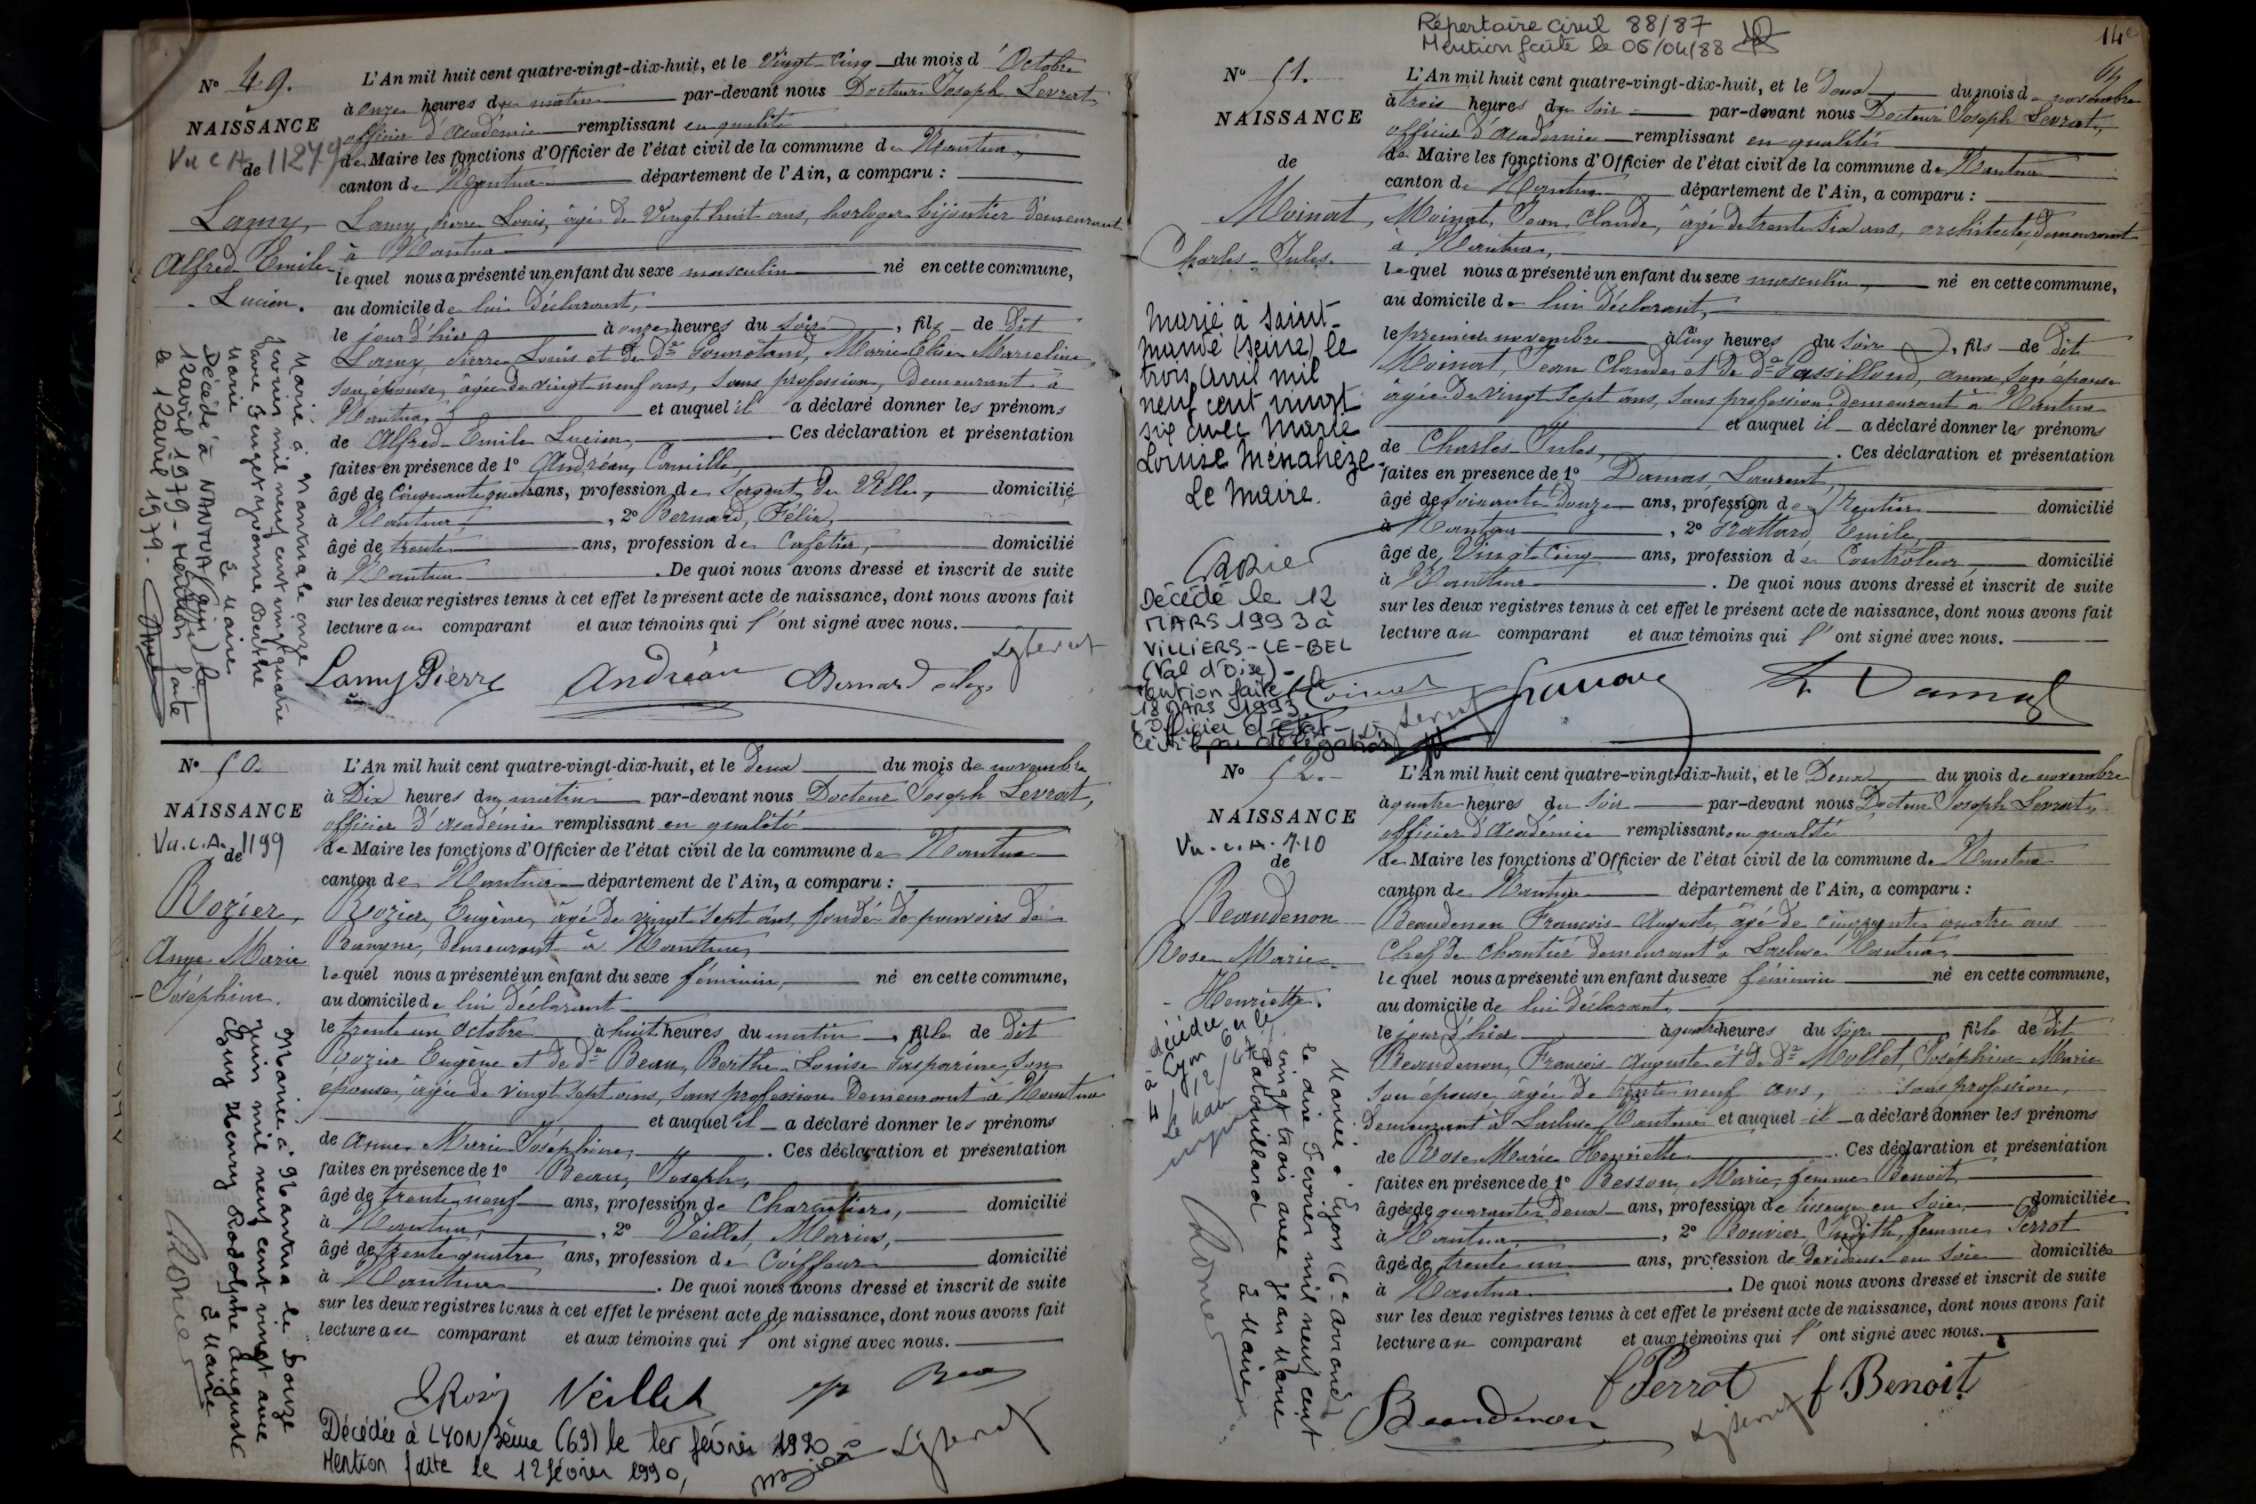 N° 49.
NAISSANCE
Vu C.A. 11279
de
Lamy,
Alfred Emile
Lucien.
L'An mil huit cent quatre-vingt-dix-huit, et le Vingt-Cinq du mois d'Octobre
à onze heures du matin par-devant nous Docteur Joseph Levrat,
officier d'académie remplissant en qualité
de Maire les fonctions d'Officier de l'état civil de la commune de Nantua,
canton de Nantua département de l'Ain, a comparu :
Lamy, Pierre Louis, âgé de Vingt huit ans, horloger bijoutier demeurant
à Nantua
lequel nous a présenté un enfant du sexe masculin né en cette commune,
au domicile de lui déclarant,
le jour d'hier à onze heures du soir, fils de dit
Lamy, Pierre Louis et de De Marie Elise Marceline,
son épouse, âgée de vingt neuf ans, sans profession, demeurant à
Nantua, et auquel il a déclaré donner les prénoms
de Alfred Emile Lucien, Ces déclaration et présentation
faites en présence de 1° Andréan, Camille,
âgé de Cinquante quatre ans, profession de Sergent de Ville, domicilié
à Nantua, 2° Bernard, Félix,
âgé de trente ans, profession de Cafetier, domicilié
à Nantua. De quoi nous avons dressé et inscrit de suite
sur les deux registres tenus à cet effet le présent acte de naissance, dont nous avons fait
lecture au comparant et aux témoins qui l'ont signé avec nous.
Lamy Pierre Andréan Bernard
Marié à Nantua le onze
février mil neuf cent vingt quatre
avec Yvonne Berthe
Marie
Le Maire
Décédé à NANTUA (Ain) le
12 avril 1979 - Mention faite
le 12 avril 1979.
N° 50.
NAISSANCE
Vu. C.A. 1199
de
Rozier,
Anne Marie
Joséphine.
L'An mil huit cent quatre-vingt-dix-huit, et le deux du mois de novembre
à Dix heures du matin par-devant nous Docteur Joseph Levrat,
officier d'académie remplissant en qualité
de Maire les fonctions d'Officier de l'état civil de la commune de Nantua
canton de Nantua département de l'Ain, a comparu :
Rozier, Eugène, âgé de vingt sept ans, fondé de pouvoirs de
Banque, demeurant à Nantua,
lequel nous a présenté un enfant du sexe féminin, né en cette commune,
au domicile de lui déclarant
le trente un Octobre à huit heures du matin, fille de dit
Rozier Eugène et de De Beau, Berthe Louise Gasparine, son
épouse, âgée de vingt sept ans, sans profession demeurant à Nantua
et auquel il a déclaré donner les prénoms
de Anne Marie Joséphine, Ces déclaration et présentation
faites en présence de 1° Beau, Joseph,
âgé de trente neuf ans, profession de Charcutier, domicilié
à Nantua, 2° Veillet, Marius,
âgé de trente quatre ans, profession de Coiffeur domicilié
à Nantua. De quoi nous avons dressé et inscrit de suite
sur les deux registres tenus à cet effet le présent acte de naissance, dont nous avons fait
lecture au comparant et aux témoins qui l'ont signé avec nous.
Mariée à Nantua le douze
juin mil neuf cent vingt avec
Guy Henry Rodolphe Auguste
Le Maire
E Rozier Veillet Beau
Décédée à LYON/3ème (69) le 1er février 1990
Mention faite le 12 février 1990,
Répertoire Civil 88/87
Mention faite le 06/04/88
14e
N° 51.
NAISSANCE
de
Moinat,
Charles Jules.
L'An mil huit cent quatre-vingt-dix-huit, et le Deux du mois de novembre
à trois heures du soir par-devant nous Docteur Joseph Levrat,
officier d'académie remplissant en qualité
de Maire les fonctions d'Officier de l'état civil de la commune de Nantua
canton de Nantua département de l'Ain, a comparu :
Moinat, Jean Claude, âgé de trente six ans, architecte, demeurant
à Nantua,
lequel nous a présenté un enfant du sexe masculin, né en cette commune,
au domicile de lui déclarant,
le premier novembre à Cinq heures du soir, fils de dit
Moinat, Jean Claude et de De Passilloud, anna, son épouse
âgée de vingt sept ans, sans profession demeurant à Nantua
et auquel il a déclaré donner les prénoms
de Charles Jules, Ces déclaration et présentation
faites en présence de 1° Damas, Laurent,
âgé de soixante Douze ans, profession de Rentier domicilié
à Nantua, 2° Emile,
âgé de Vingt Cinq ans, profession de Contrôleur, domicilié
à Nantua. De quoi nous avons dressé et inscrit de suite
sur les deux registres tenus à cet effet le présent acte de naissance, dont nous avons fait
lecture au comparant et aux témoins qui l'ont signé avec nous.
Marié à Saint-
Mandé (Seine) le
trois avril mil
neuf cent vingt
six avec Marie
Louise Ménaheze
Le Maire.
Décédé le 12
MARS 1993 à
VILLIERS-LE-BEL
(Val d'Oise) -
Mention faite le
18 MARS 1993
L'Officier d'Etat-
Civil par délégation
Moinat L. Damas
N° 52.
NAISSANCE
Vu. C.A. 710
de
Beaudenon
Rose Marie
Henriette.
L'An mil huit cent quatre-vingt-dix-huit, et le Deux du mois de novembre
à quatre heures du soir par-devant nous Docteur Joseph Levrat,
officier d'Académie remplissant en qualité
de Maire les fonctions d'Officier de l'état civil de la commune de Nantua
canton de Nantua département de l'Ain, a comparu :
Beaudenon François Auguste, âgé de cinquante quatre ans
Chef de Chantier demeurant à Lacluse Nantua,
lequel nous a présenté un enfant du sexe féminin né en cette commune,
au domicile de lui déclarant,
le jour d'hier à quatre heures du soir, fille de dit
Beaudenon, François Auguste et de De Mollet, Joséphine Marie
son épouse, âgée de trente neuf ans, sans profession,
demeurant à Lacluse Nantua et auquel il a déclaré donner les prénoms
de Rose Marie Henriette. Ces déclaration et présentation
faites en présence de 1° Besson, Marie, femme Benoit,
âgée de quarante deux ans, profession de tisseuse en soie, domiciliée
à Nantua, 2° Bouvier, Judith, femme Perrot
âgée de trente un ans, profession de Dévideuse en Soie domiciliée
à Nantua. De quoi nous avons dressé et inscrit de suite
sur les deux registres tenus à cet effet le présent acte de naissance, dont nous avons fait
lecture au comparant et aux témoins qui l'ont signé avec nous.
Mariée à Lyon (6e arrond)
le dix Février mil neuf cent
vingt trois avec Jean Marie
Patouillard
Le Maire
décédée
à Lyon 6e le
f Perrot f Benoit
Beaudenon